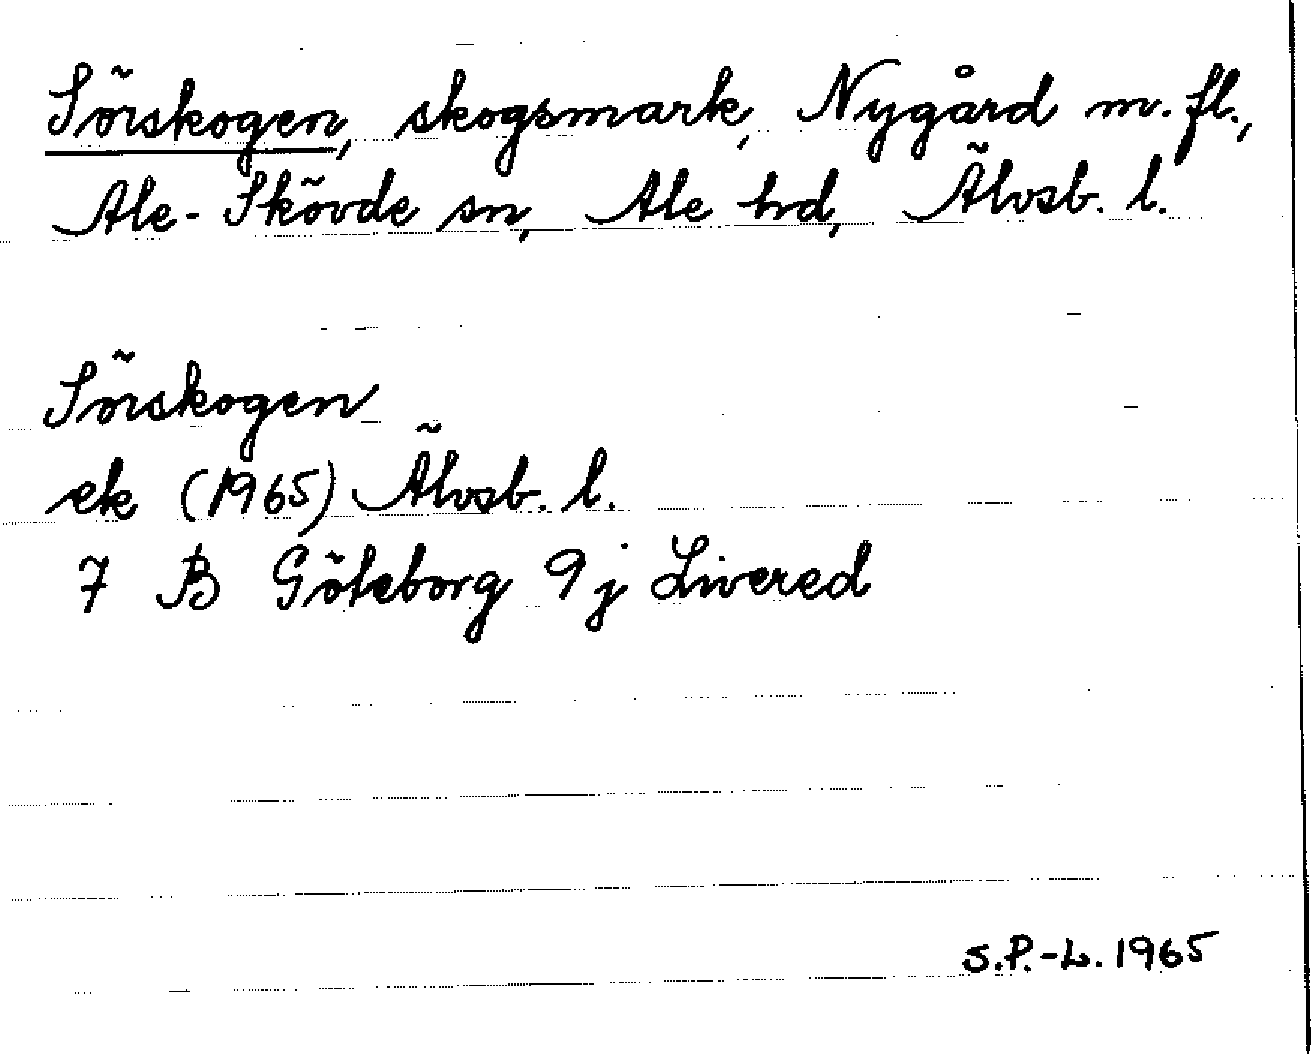 Sörskogen, skogsmark, Nygård m.fl.,
Ale-Skövde sn, Ale hd, Älvsb. l.
Sörskogen
ek (1965) Älvsb. l.
7 B Göteborg 9j Livered
S.P.-L. 1965